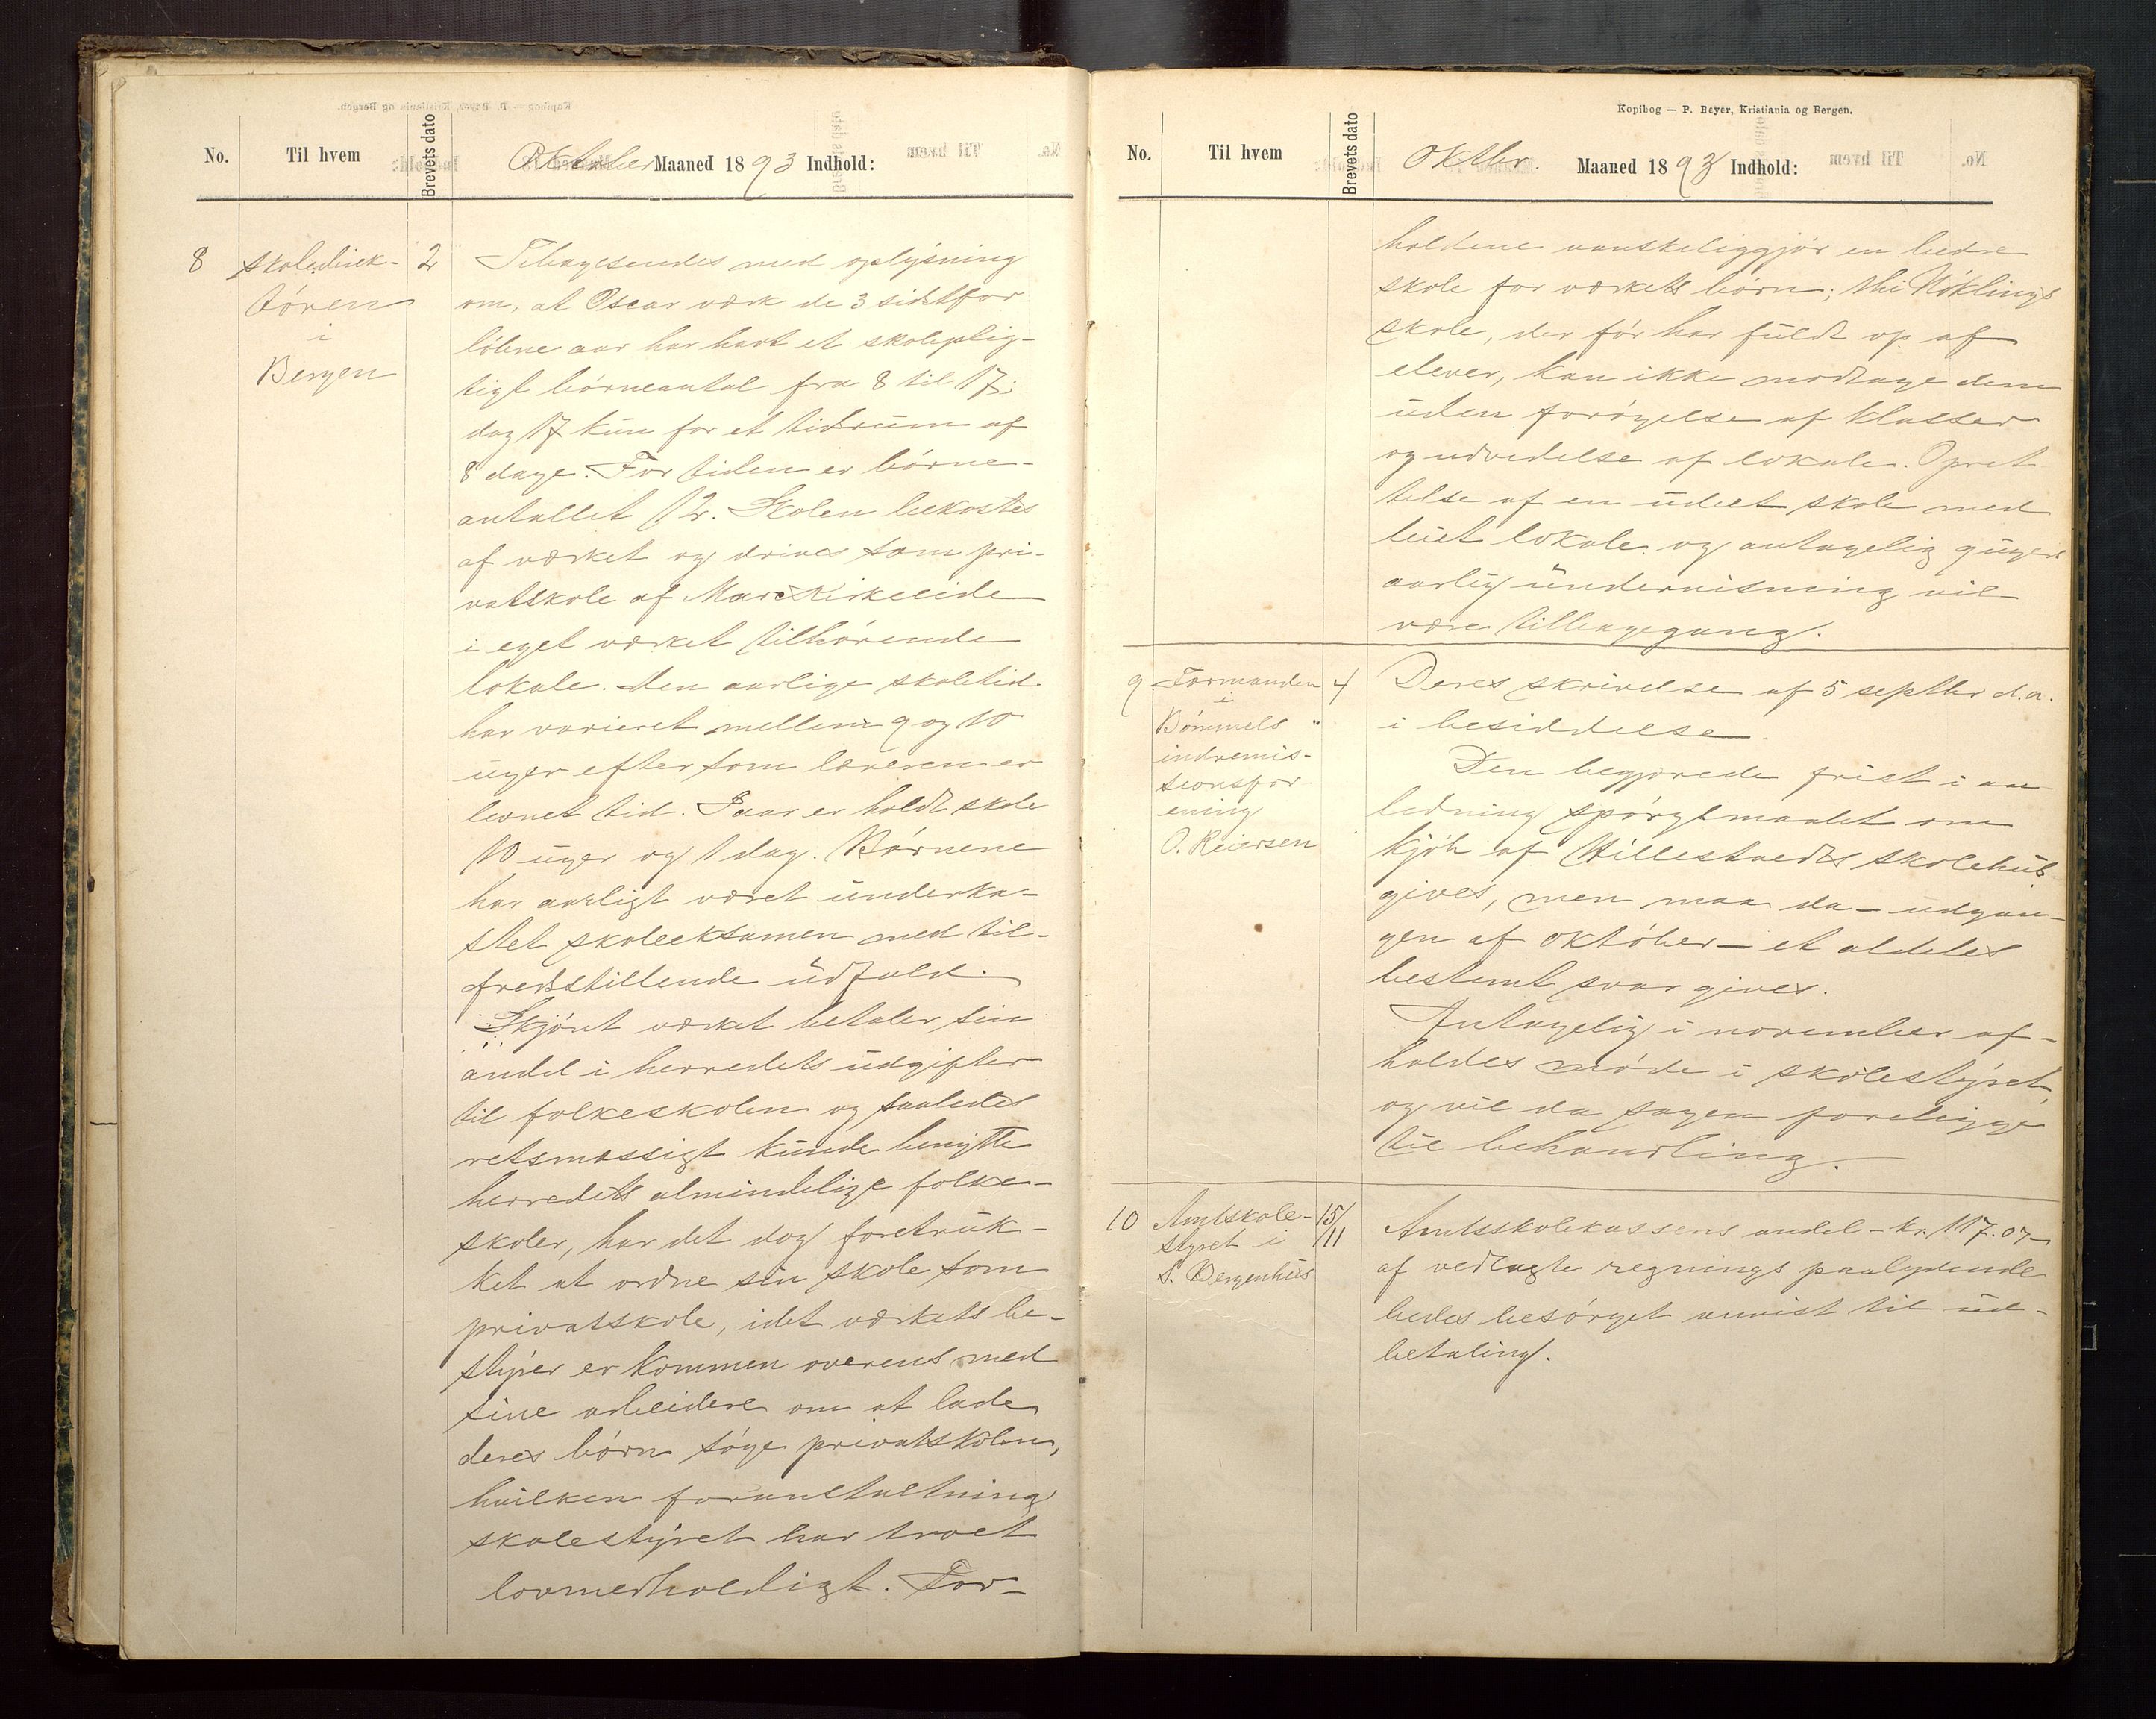 No.
Til hvem
Brevets dato
Oktober Maaned 1893 Indhold:
8
Skoledirek-
tören
i
Bergen
2
Tilbagesendes med oplysning
om, at Oscar værk de 3 sidstfor
löbne aar har havt et skoleplig-
tigt börneantal fra 8 til 17;
dog 17 kun for et tidsrum af
8 dage. For tiden er börne-
antallet 12. Skolen bekostes
af værket og drives som pri-
vatskole af Kirkeeide
i eget værket tilhörende
lokale. Den aarlige skoletid
har varieret mellem 9 og 10
uger eftersom læreren er
levnet tid. Iaar er holdt skole
10 uger og 1 dag. Börnene
har aarligt været underka-
stet skoleeksamen med til-
fredsstillende udfald.
Skjönt værket betaler sin
andel i herredets udgifter
til folkeskolen og saaledes
retsmæssigt kunde benytte
herredets almindelige folke-
skoler, har det dog foretruk-
ket at ordne sin skole som
privatskole, idet værkets be-
styrer er kommen overens med
sine arbeidere om at lade
deres börn söge privatskolen,
hvilken foranstaltning
skolestyret har troet
lovmedholdigt. For-
Kopibog — P. Beyer, Kristiania og Bergen.
No.
Til hvem
Brevets dato
Oktbr. Maaned 1893 Indhold:
holdene vanskeliggjör en bedre
skole for værkets börn; thi Nöklings
skole, der för har fuldt op af
elever, kan ikke modtage dem
uden forögelse af klasser
og udvidelse af lokale. Opret
telse af en udelt skole med
leiet lokale og antagelig 9 ugers
aarlig undervisning vil
være tilbagegang.
9
Formanden
i
Bömmels
indremis-
sionsfor
ening
O. Reiersen
4
Deres skrivelse af 5 septbr d.a.
i besiddelse.
Den begjærede frist i an
ledning spörgsmaalet om
kjöb af Hillestvedts skolehus
gives, men maa da – udgan-
gen af oktöber – et aldeles
bestemt svar gives.
Antagelig i november af-
holdes möde i skolestyret,
og vil da sagen foreligge
til behandling.
10
Amtskole-
styret i
S. Bergenhus
15/11
Amtsskolekassens andel – kr. 117.07 –
af vedlagte regnings paalydende
bedes besörget anvist til ud-
betaling.